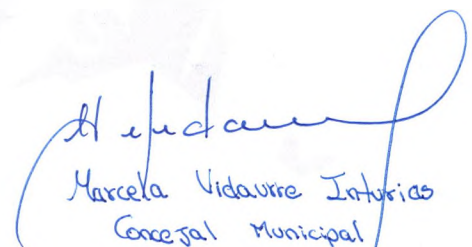 Marcela Vidaurre Inturias
Concejal Municipal